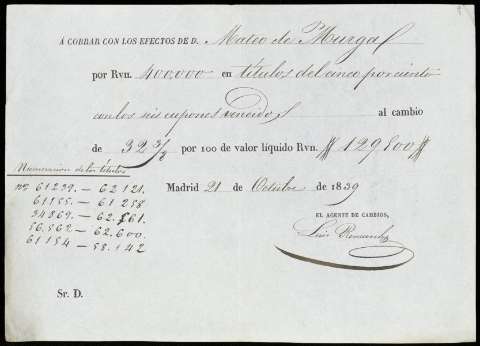 Á COBRAR CON LOS EFECTOS DE D. Mateo de Murga
por Rvn. 400,000 en títulos del cinco por ciento
con los seis cupones vencidos al cambio
de 32 3/8 por 100 de valor líquido Rvn. # 129,500 #
Numeracion de los títulos
nos 61239. — 62121.
61155. — 61258
54869. — 62.561.
56,562 — 62.600.
61154 — 58.142
Madrid 21 de Octubre de 1839
EL AGENTE DE CAMBIOS,
Luis
Sr. D.